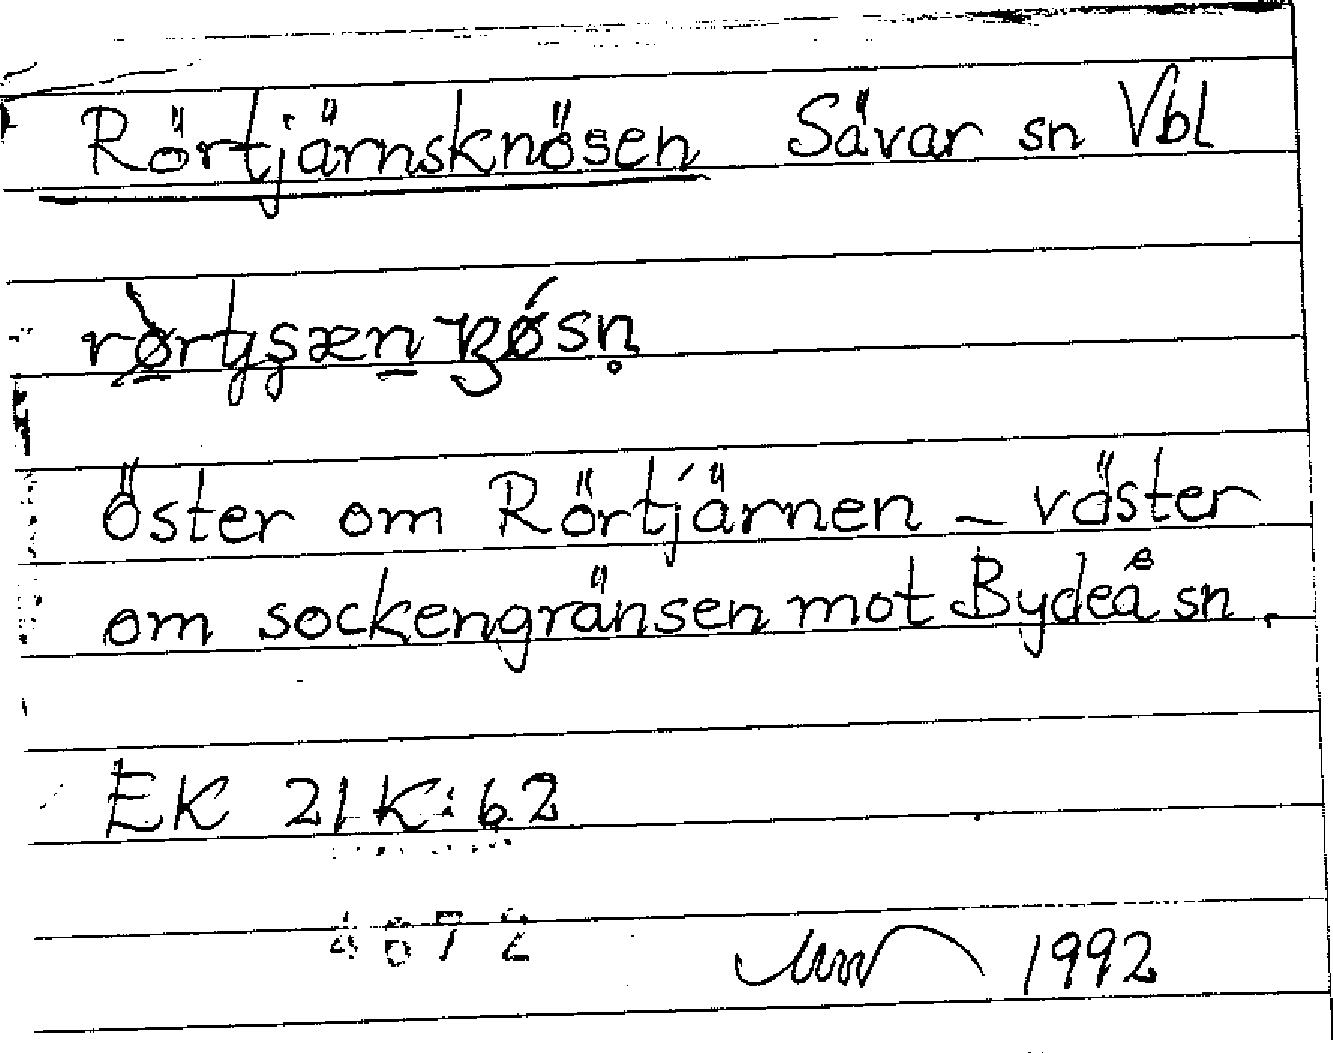 Rörtjärnsknösen Sävar sn Vbl
Öster om Rörtjärnen – väster
om sockengränsen mot Bydeå sn.
EK 21K:62
1992